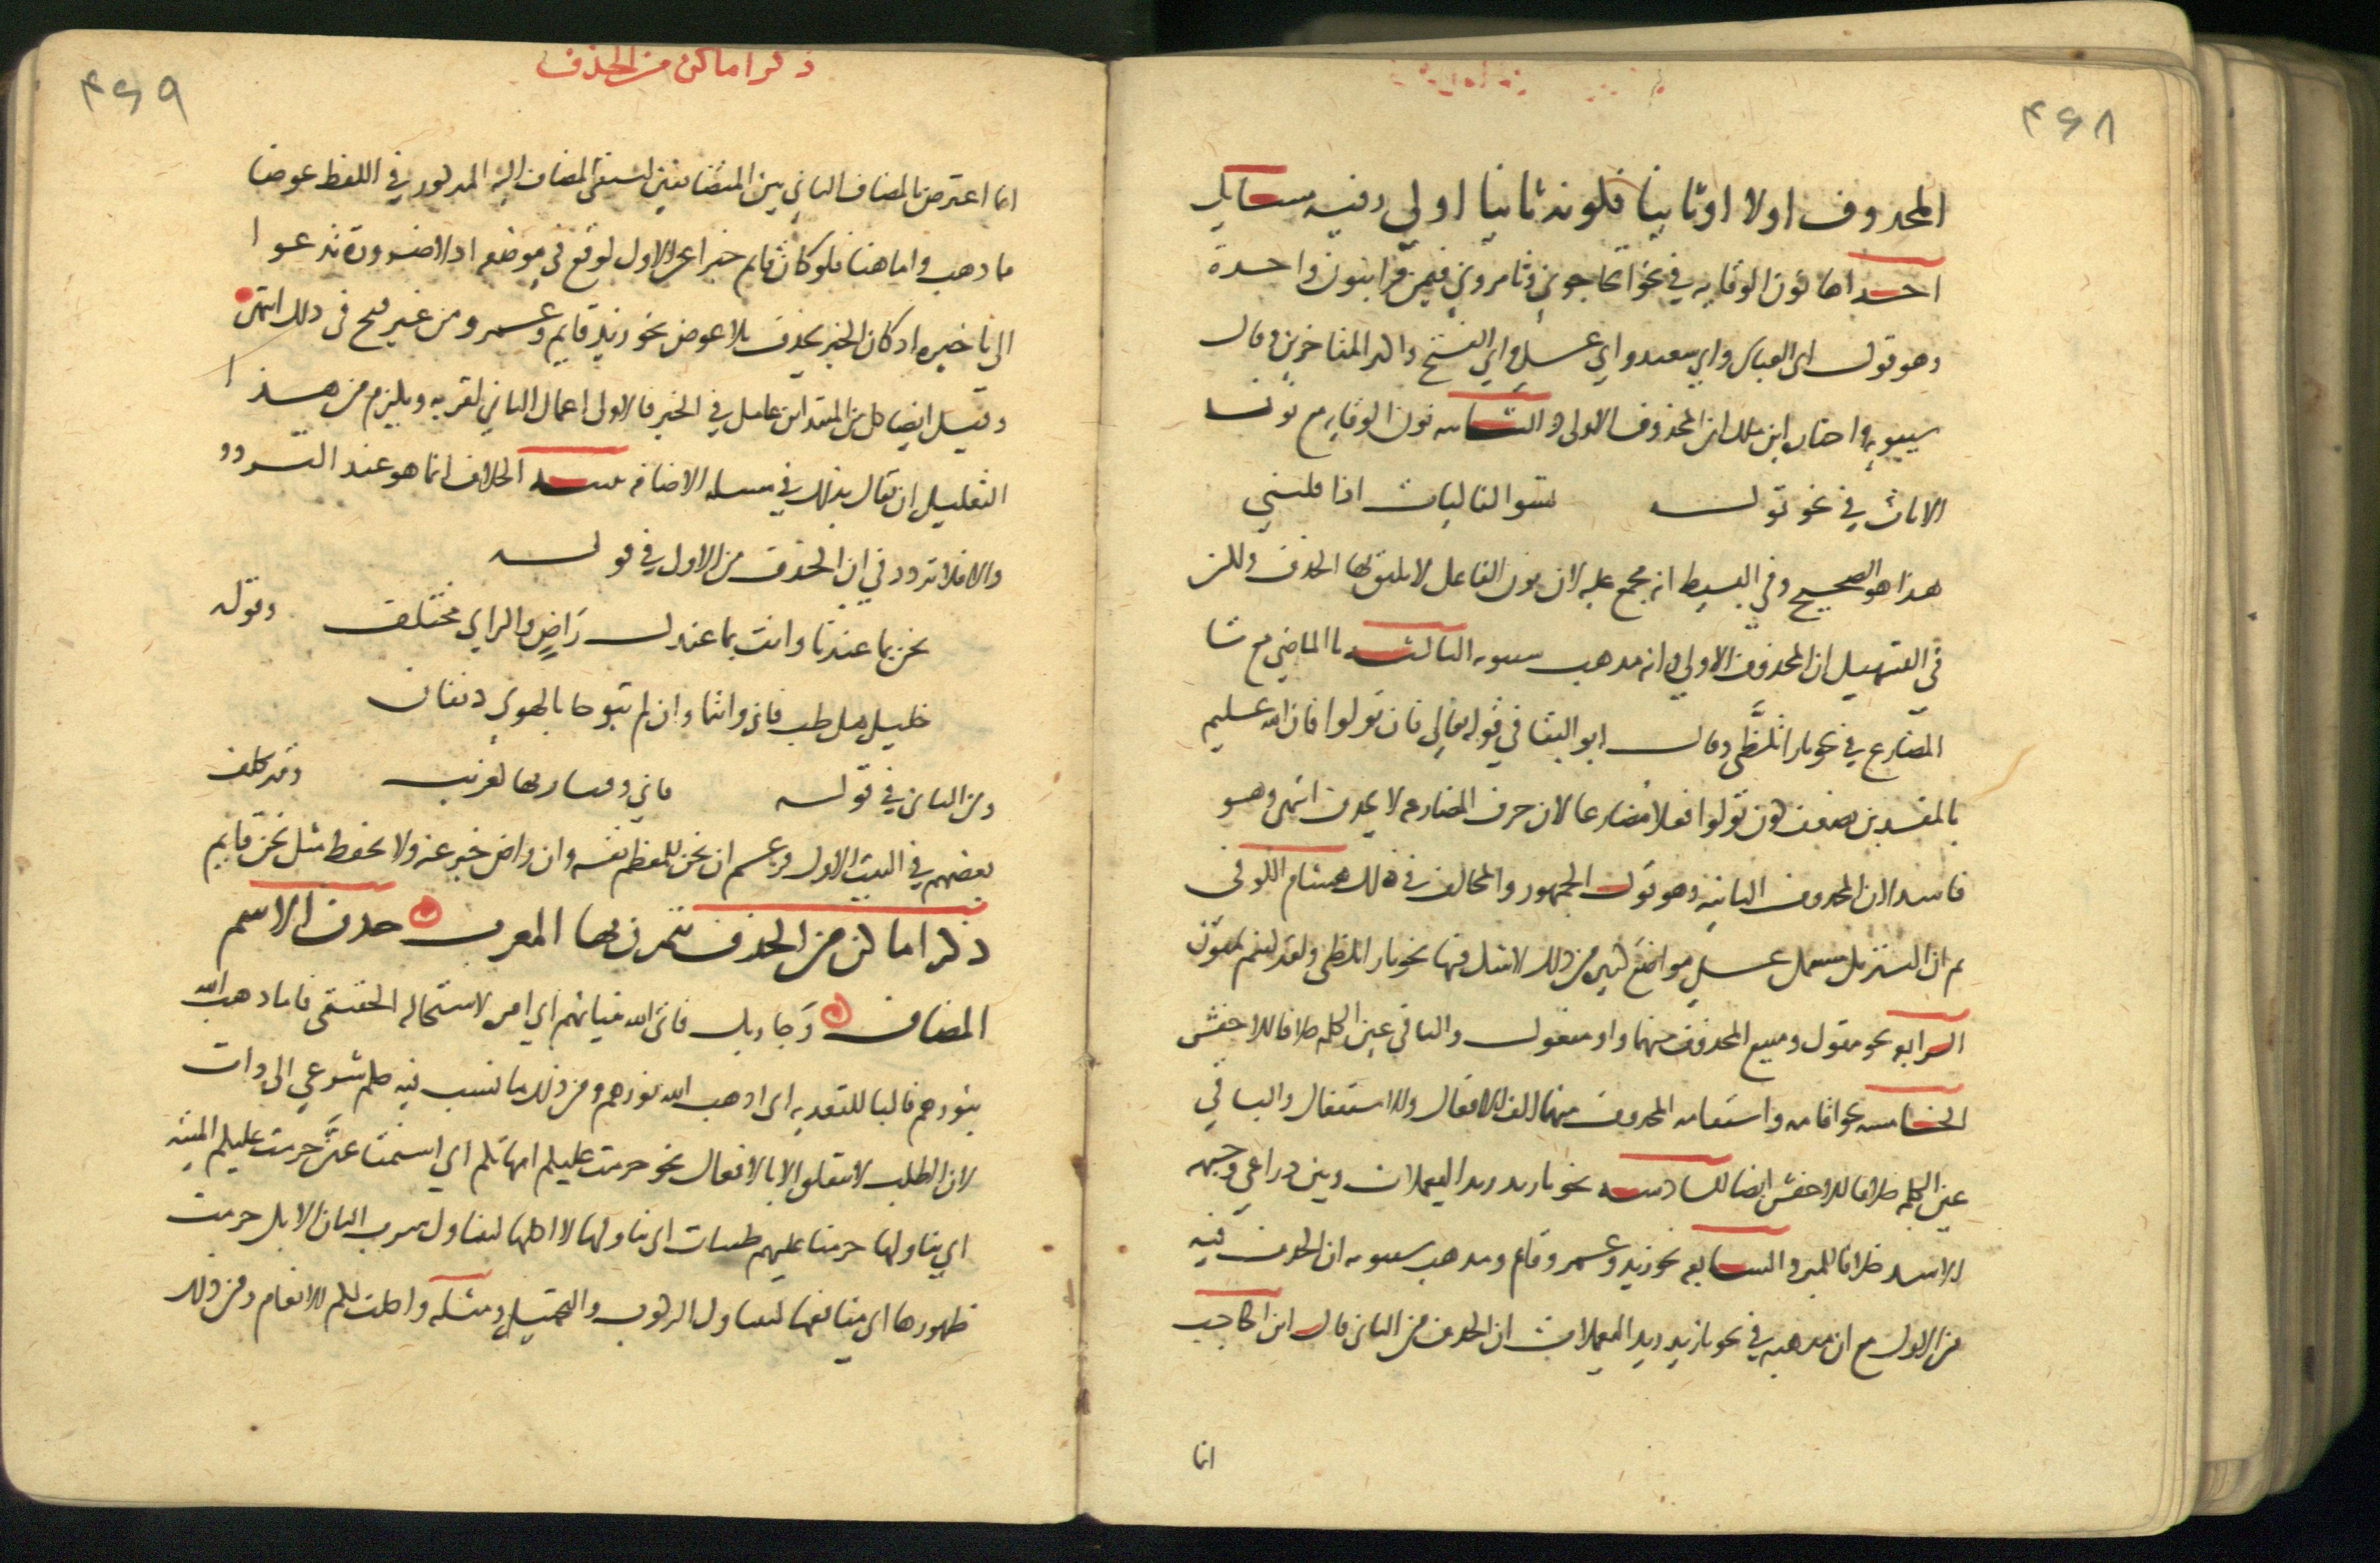 ۴۶۸
المحذوف اولا او ثانيا فكونه ثانيا اولى وفيه مسايل
احداها نون الوقايه في نحو اتحاجوني وتامروني فيمن قرا بنون واحدة
وهو قول ابى العباس وابي سعيد وابي على وابي الفتح واكثر المتاخرين وقال
سيبويه واختاره ابن ملك ان المحذوف الاولى الثانيه نون الوقايه مع نون
الاناث في نحو قوله يسو الفاليات اذا فليني
هذا هو الصحيح وفي البسيط انه مجمع عليه لان نون الفاعل لا يليق بها الحذف ولكن
في التسهيل ان المحذوف الاولى وانه مذهب سيبويه الثالثه تا الماضي مع تا
المضارع في نحو نارا تلظى وقال ابو البقا في قوله تعالى فان تولوا فان الله عليم
بالمفسدين يضعف كون تولوا فعلا مضارعا لان حرف المضارعه لا يحذف انتهى وهو
فاسد لان المحذوف الثانيه وهو قول الجمهور والمخالف في ذلك هشام الكوفي
ثم ان التنزيل مشتمل على مواضع كثيره من ذلك لا شك فيها نحو نارا تلظى ولقد كنتم تمنون
الرابعه نحو مقول ومبيع المحذوف منهما واو مفعول والباقي عين الكلمه خلافا للاخفش
الخامسه نحو اقامه واستقامه المحذوف منهما الف الافعال والاستفعال والباقي
عين الكلمه خلافا للاخفش ايضا السادسه نحو يا زيد زيد اليعملات وبين ذراعي وجبهه
الاسد خلافا للمبرد السابعه نحو زيد وعمرو قام ومذهب سيبويه ان الحذف فيه
من الاول مع ان مذهبه في نحو يا زيد زيد اليعملات ان الحذف من الثاني قال ابن الحاجب
انما
۴۶۹
ذكر اماكن من الحذف
انما اعترض بالمضاف الثاني بين المتضايفين ليبقى المضاف اليه المذكور في اللفظ عوضا
مما ذهب واما هنا فلو كان قايم خبرا عن الاول لوقع في موضعه اذ لا ضرورة تدعوا
الى تاخيره اذ كان الخبر يحذف بلا عوض نحو زيد قايم وعمرو من غير قبح في ذلك انتهى
وقيل ايضا كل من المبتداين عامل في الخبر فالاولى اعمال الثاني لقربه ويلزم من هذا
التعليل ان يقال بذلك في مسله الاضافه تنبيه الخلاف انما هو عند التردد
والا فلا تردد في ان الحذف من الاول في قوله
نحن بما عندنا وانت بما عندك راضٍ والراي مختلف وقوله
خليلي هل طب فاني وانتما وان لم تبوحا بالهوى دنفان
ومن الثاني في قوله فاني وقيار بها لغريب وقد تكلف
بعضهم في البيت الاول فزعم ان نحن للمعظم نفسه وان راض خبر عنه ولا يحفظ مثل نحن قايم
ذكر اماكن من الحذف يتمرن بها المعرب حذف الاسم
المضاف وجا ربك فاتى الله بنيانهم اي امره لاستحاله الحقيقي فاما ذهب الله
بنورهم فالبا للتعديه اى اذهب الله نورهم ومن ذلك ما نسب فيه حكم شرعي الى ذات
لان الطلب لا يتعلق الا بالافعال نحو حرمت عليكم امهاتكم اي استمتاعهن حرمت عليكم الميته
اي تناولها حرمنا عليهم طيبات اى تناولها لا اكلها ليتناول شرب البان الابل حرمت
ظهورها اى منافعها ليتناول الركوب والتحميل ومثله واحلت لكم الانعام ومن ذلك